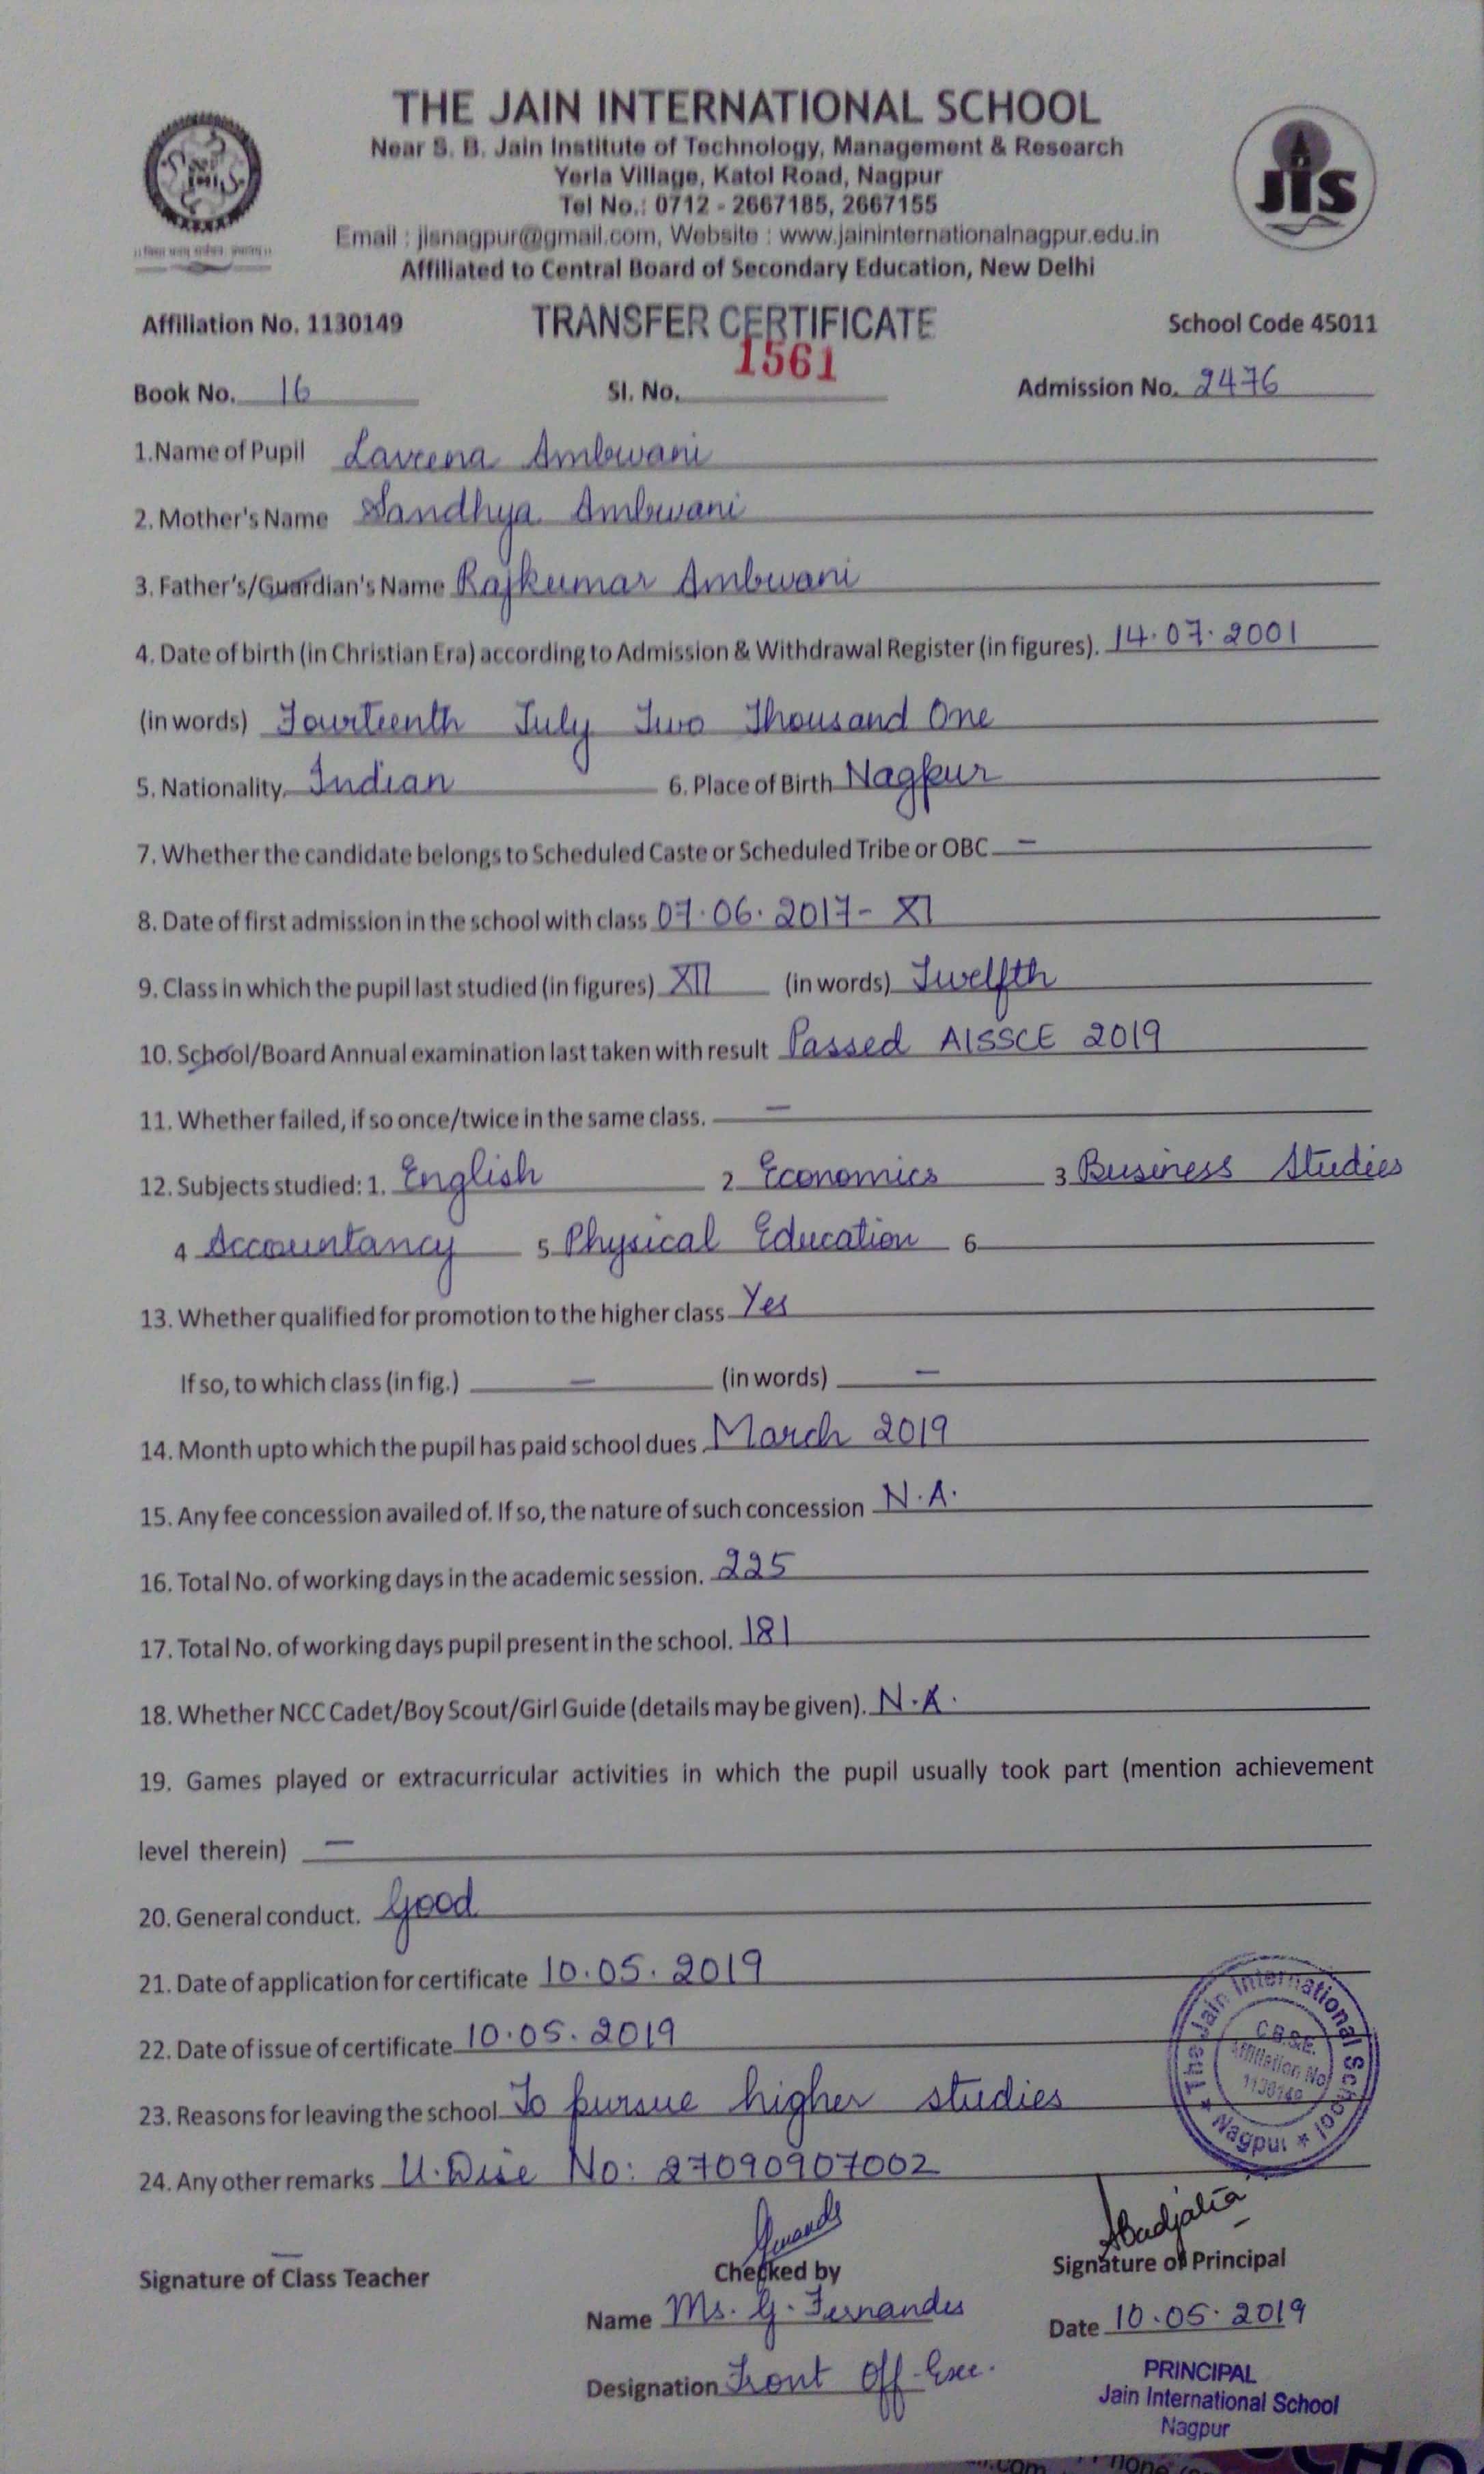 THE JAIN INTERNATIONAL SCHOOL
Near S. B. Jain Institute of Technology, Management & Research
Yerla Village, Katol Road, Nagpur
Tel No.: 0712 - 2667185, 2667155
Email : jisnagpur@gmail.com, Website : www.jaininternationalnagpur.edu.in
Affiliated to Central Board of Secondary Education, New Delhi
JIS
Affiliation No. 1130149 TRANSFER CERTIFICATE School Code 45011
Book No. 16 Sl. No. 1561 Admission No. 2476
1.Name of Pupil Laveena Ambwani
2. Mother's Name Sandhya Ambwani
3. Father's/Guardian's Name Rajkumar Ambwani
4. Date of birth (in Christian Era) according to Admission & Withdrawal Register (in figures). 14.07.2001
(in words) Fourteenth July Two Thousand One
5. Nationality Indian 6. Place of Birth Nagpur
7. Whether the candidate belongs to Scheduled Caste or Scheduled Tribe or OBC –
8. Date of first admission in the school with class 07.06.2017- XI
9. Class in which the pupil last studied (in figures) XII (in words) Twelfth
10. School/Board Annual examination last taken with result Passed AISSCE 2019
11. Whether failed, if so once/twice in the same class. –
12. Subjects studied: 1. English 2 Economics 3 Business Studies
4 Accountancy 5 Physical Education 6
13. Whether qualified for promotion to the higher class Yes
If so, to which class (in fig.) – (in words) –
14. Month upto which the pupil has paid school dues March 2019
15. Any fee concession availed of. If so, the nature of such concession N.A.
16. Total No. of working days in the academic session. 225
17. Total No. of working days pupil present in the school. 181
18. Whether NCC Cadet/Boy Scout/Girl Guide (details may be given). N.A.
19. Games played or extracurricular activities in which the pupil usually took part (mention achievement
level therein) –
20. General conduct. Good
21. Date of application for certificate 10.05.2019
22. Date of issue of certificate 10.05.2019
23. Reasons for leaving the school To pursue higher studies
24. Any other remarks U.Dise No: 27090907002
The Jain International School * Nagpur *
C.B.S.E.
Affiliation No
1130149
Signature of Class Teacher Checked by Signature of Principal
Name Ms. G. Fernandes Date 10.05.2019
Designation Front Off. Exec.
PRINCIPAL
Jain International School
Nagpur